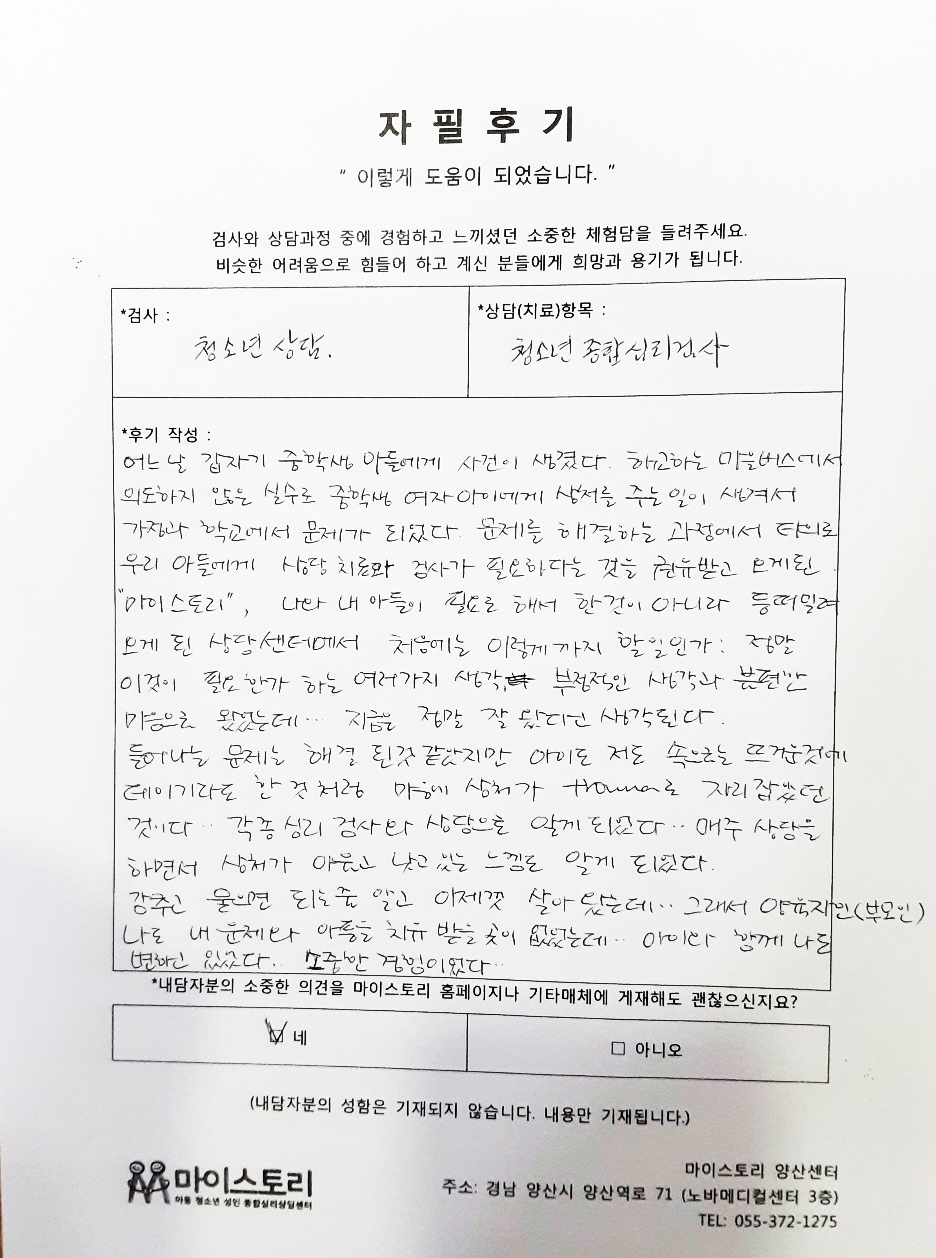 자 필 후 기
" 이렇게 도움이 되었습니다. "
검사와 상담과정 중에 경험하고 느끼셨던 소중한 체험담을 들려주세요.
비슷한 어려움으로 힘들어 하고 계신 분들에게 희망과 용기가 됩니다.
*검사 :
청소년 상담.
*상담(치료)항목 :
청소년 종합심리검사
*후기 작성 :
어느날 갑자기 중학생 아들에게 사건이 생겼다. 하교하는 마을버스에서
의도하지 않은 실수로 중학생 여자아이에게 상처를 주는일이 생겨서
가정과 학교에서 문제가 되었다. 문제를 해결하는 과정에서 타의로
우리 아들에게 상담치료와 검사가 필요하다는 것을 권유받고 오게된.
"마이스토리", 나와 내 아들이 필요로 해서 한것이 아니라 등떠밀려
오게 된 상담센터에서 처음에는 이렇게까지 할일인가: 정말
이것이 필요한가 하는 여러가지 생각, 부정적인 생각과 불편한
마음으로 왔었는데… 지금은 정말 잘 왔다고 생각된다.
들어나는 문제는 해결 된것 같았지만 아이도 저도 속으로는 뜨거운것에
데이기라도 한 것처럼 마음에 상처가 로 자리잡았던
것이다‥ 각종심리 검사와 상담으로 알게 되었다‥ 매주 상담을
하면서 상처가 아물고 낫고 있는 느낌도 알게 되었다.
감추고 묻으면 되는줄 알고 이제껏 살아 왔는데‥ 그래서 양육자인(부모인)
나도 내 문제와 아픔을 치유 받을 곳이 없었는데‥ 아이와 함께 나도
변하고 있었다‥ 소중한 경험이었다‥
*내담자분의 소중한 의견을 마이스토리 홈페이지나 기타매체에 게재해도 괜찮으신지요?
네
□ 아니오
(내담자분의 성함은 기재되지 않습니다. 내용만 기재됩니다.)
마이스토리
아동 청소년 성인 종합심리상담센터
마이스토리 양산센터
주소: 경남 양산시 양산역로 71 (노바메디컬센터 3층)
TEL: 055-372-1275